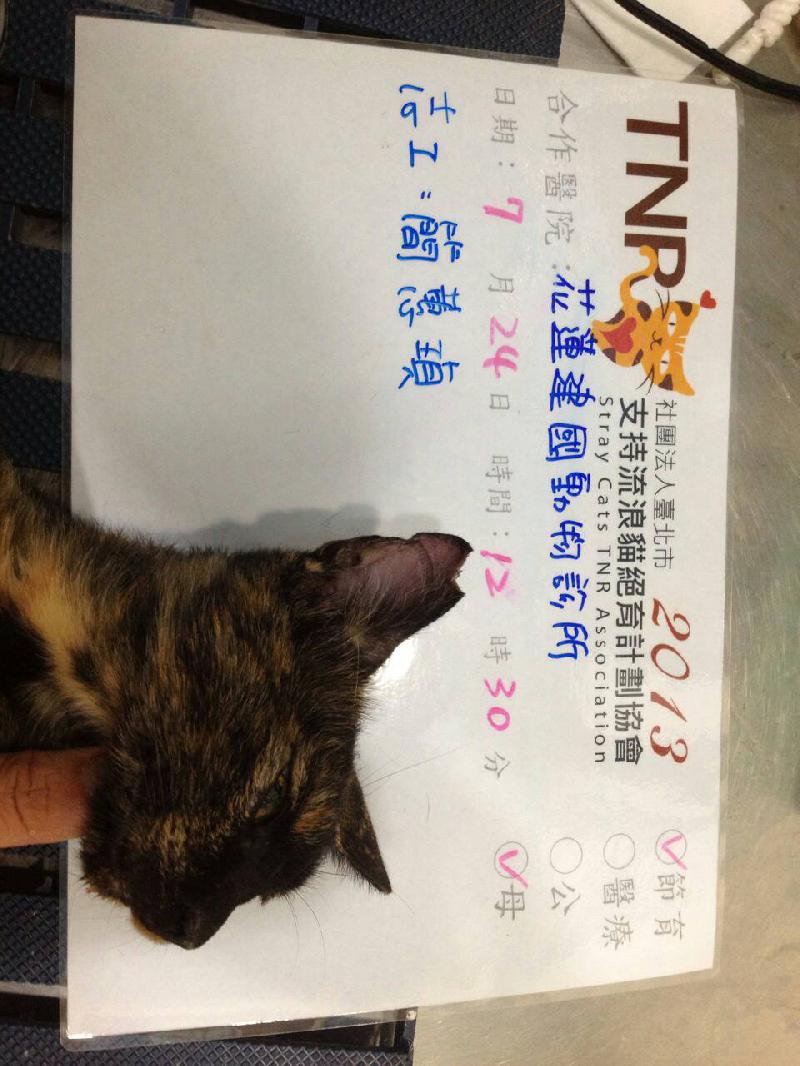 TNR
社團法人臺北市
2013
支持流浪貓絕育計劃協會
Stray Cats TNR Association
合作醫院:花蓮建國動物診所
日期:7月24日 時間:12時30分
志工:簡蕙瑱
節育
醫療
公
母